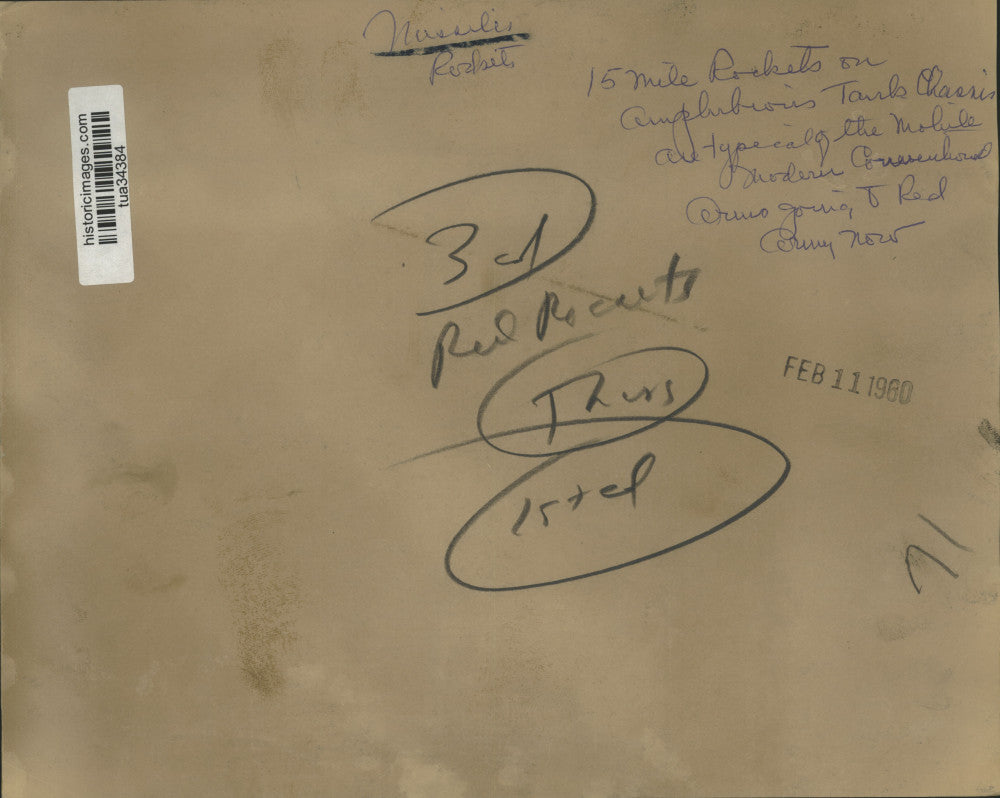 Missiles
Rockets
15 mile Rockets on
amphibious Tank Chassis
are typical of the mobile
modern Conventional
arms going To Red
Army Now
historicimages.com
tua34384
3 ed
Red Rockets
Thurs
1st ed
FEB 11 1960
71